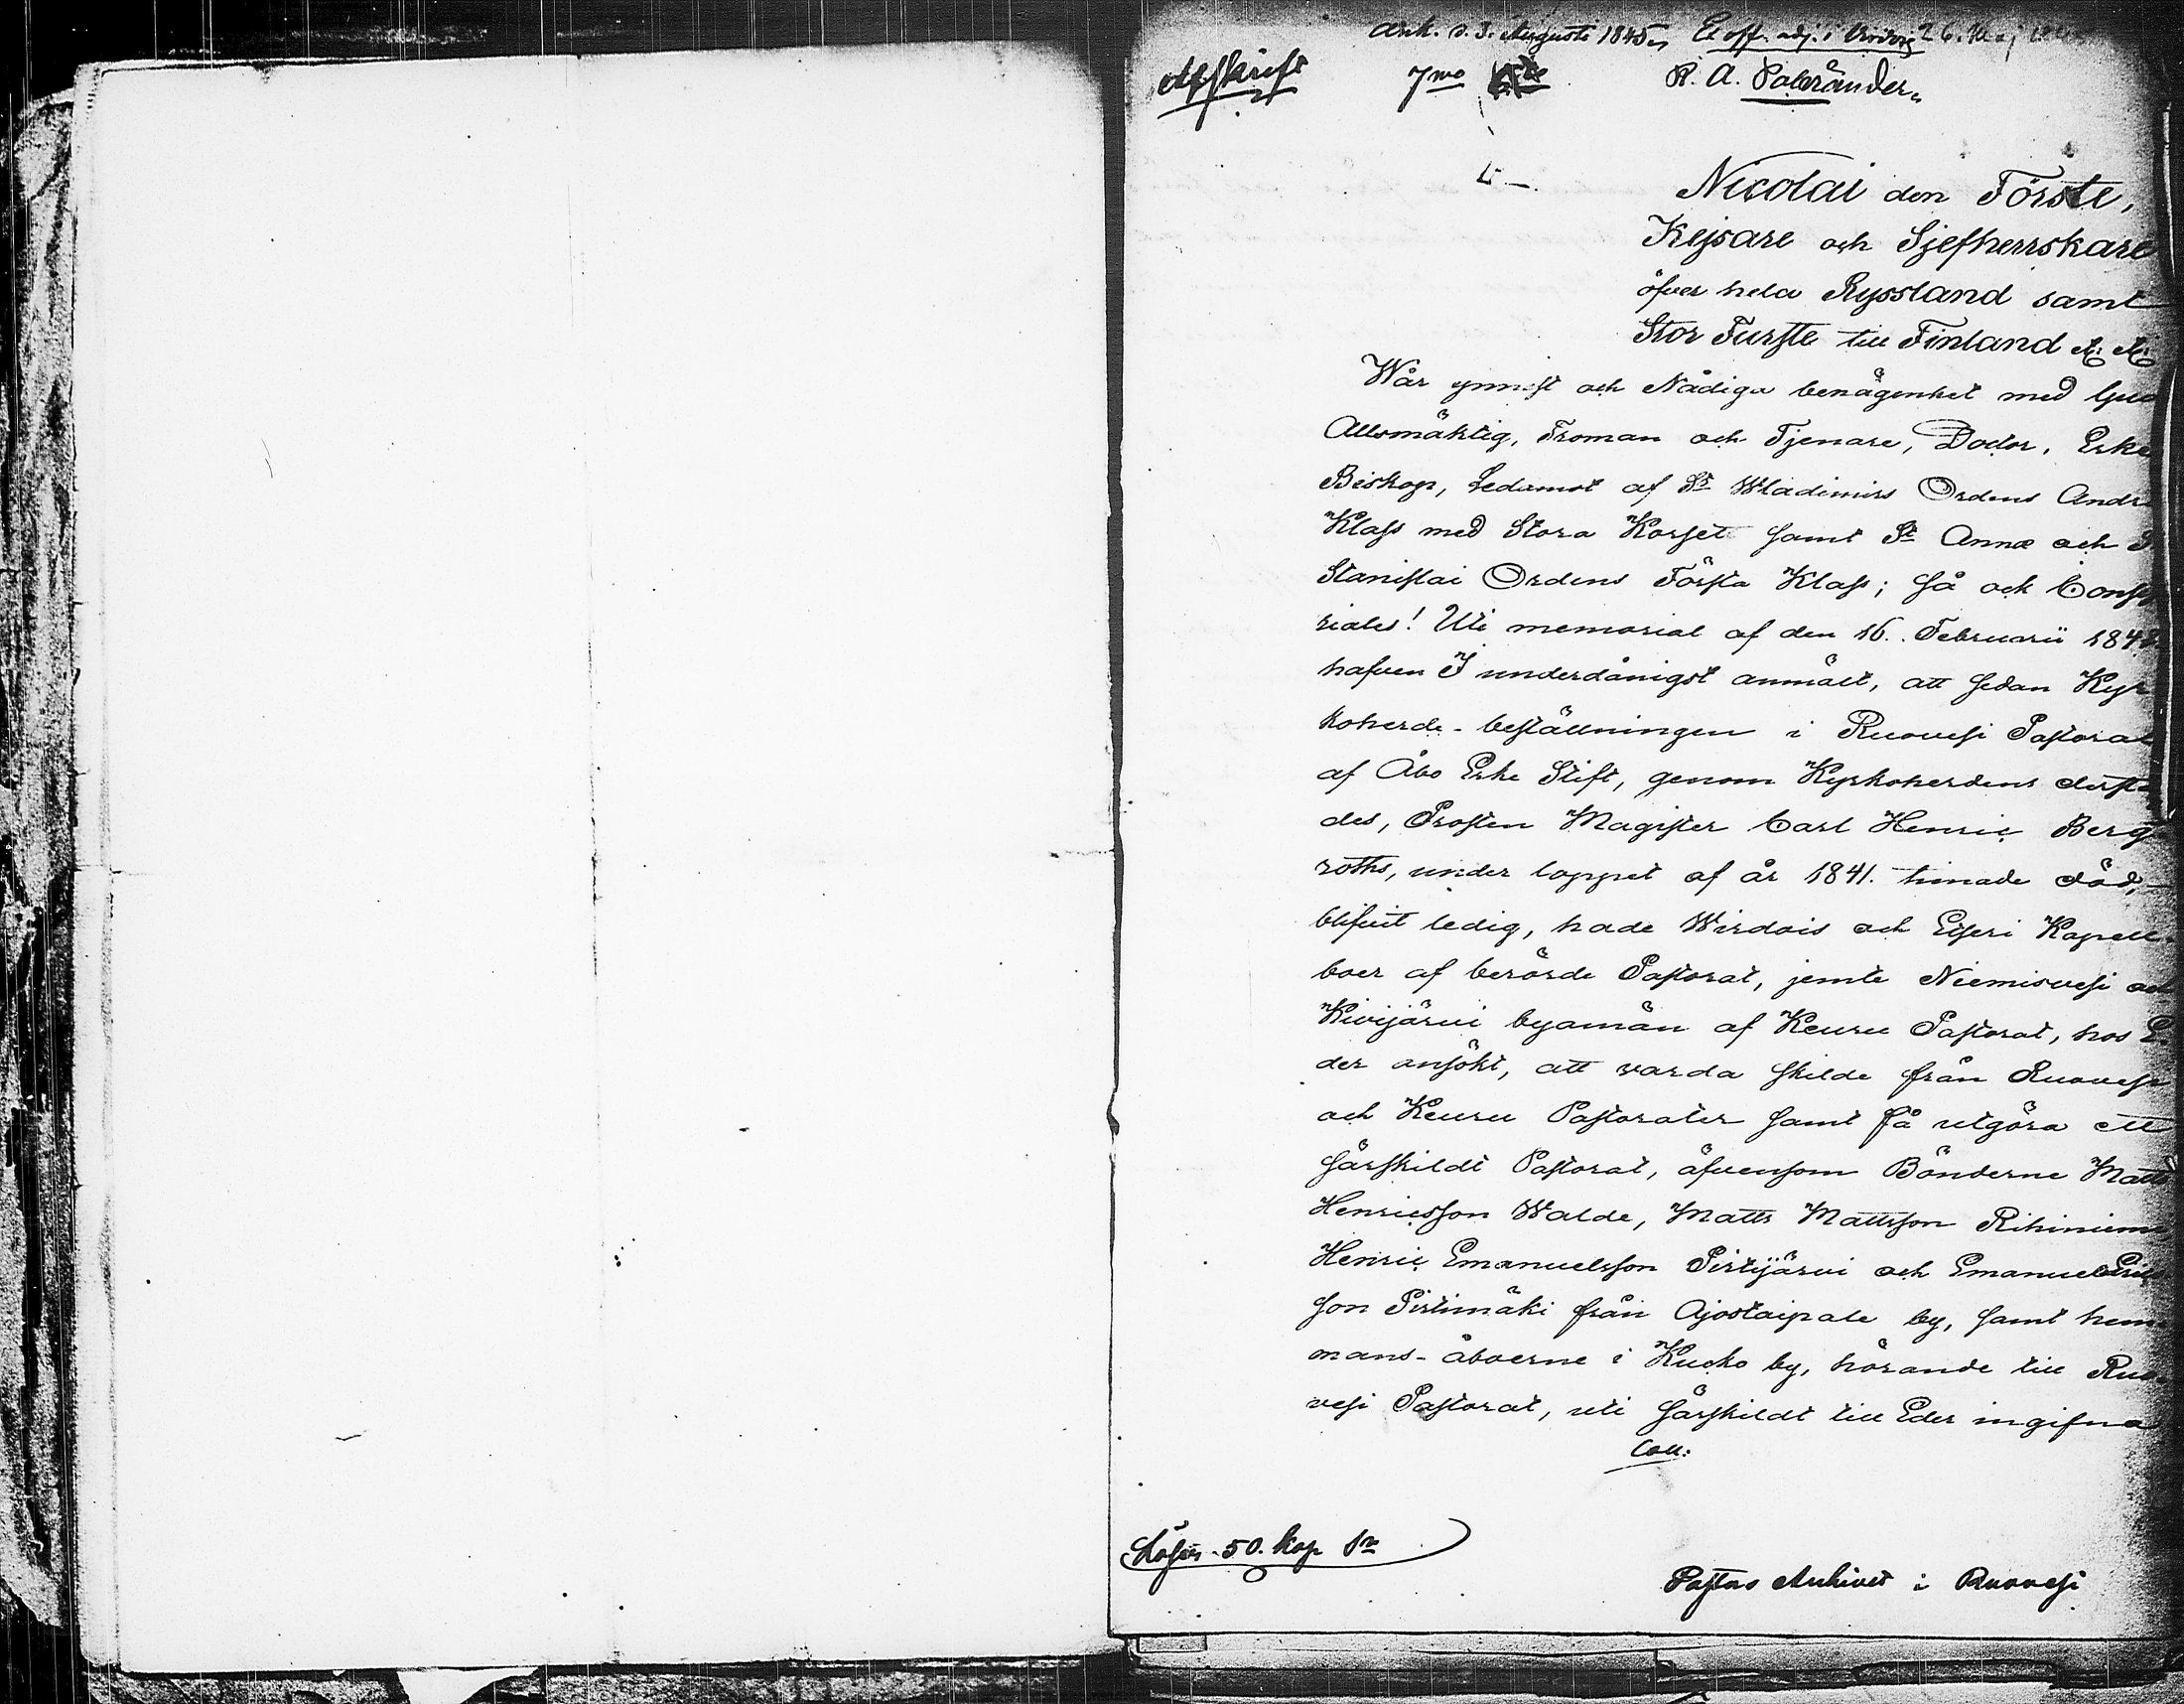 Ank. d. 3. Augusti 1845,
Afskrift 7mo R. A. Palmränder
Nicolai den Förste,
Kejsare och Sjelfherrskare
öfver hela Ryssland samt
Stor Furste till Finland &c. &c.
Wår ynnest och Nådiga benägenhet med Gud
Allsmäktig, Troman och Tjenare, Doctor, Erke
Biskop, Ledamot af St Wladimirs Ordens Andra
Klass med Stora Korset samt St Annæ och St
Stanislai Ordens Första Klass; så och Consisto
riales! Uti memorial af den 16. Februarii 184
hafven I underdånigst anmält, att sedan Kyr
koherde-beställningen i Ruovesi Pastorat
af Åbo Erke Stift, genom Kyrkoherdens derst
des, Prosten Magister Carl Henric Berg
roths, under loppet af år 1841. timade död,
blifvit ledig, hade Wirdois och Etseri Kapell-
boer af berörde Pastorat, jemte Niemisvesi och
Kivijärvi byamän af Keuru Pastorat, hos E
der ansökt, att varda skilde från Ruovesi
och Keuru Pastorater samt få utgöra ett
särskildt Pastorat, äfvensom Bönderne Matts
Henricsson Walde, Matts Mattsson Rihiniemi
Henric Emanuelsson Pirtijärvi och Emanuel Erics
son Pirtimäki från Ajostaipale by, samt hem
mans-åboerne i Kucko by, hörande till Ruo
vesi Pastorat, uti särskildt till Eder ingifna
Coll:
Löser. 50. kop Sr
Pastors Archivet i Ruovesi